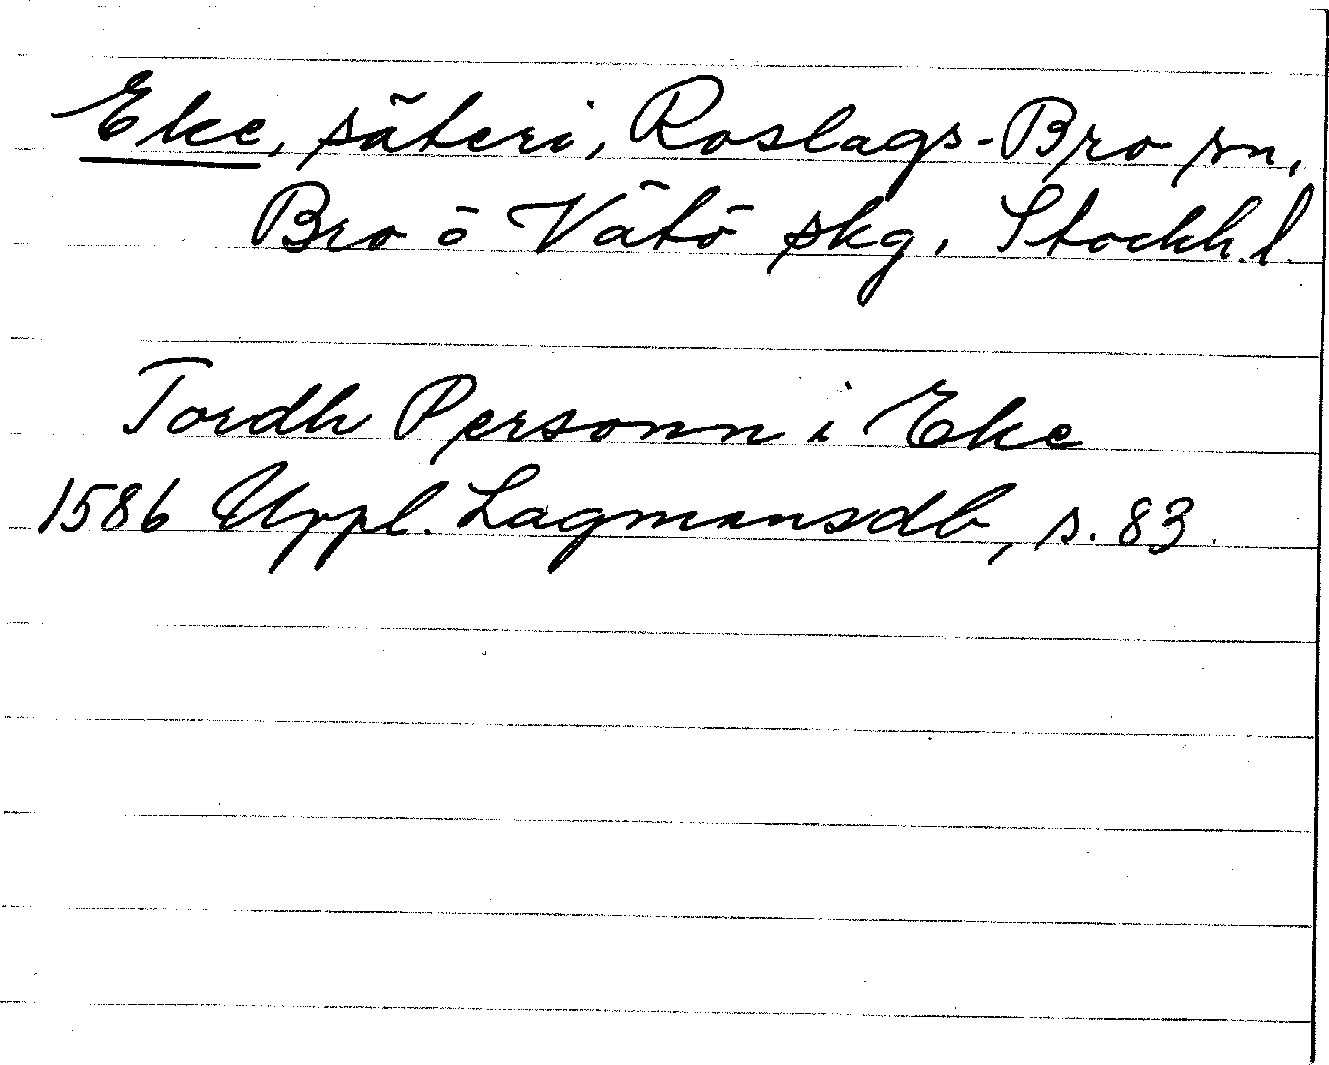 Eke, säteri, Roslags-Bro sn,
Bro o Vätö skg, Stockh.l.
Tordh Personn i Eke
1586 Uppl. Lagmansdb, s. 83.